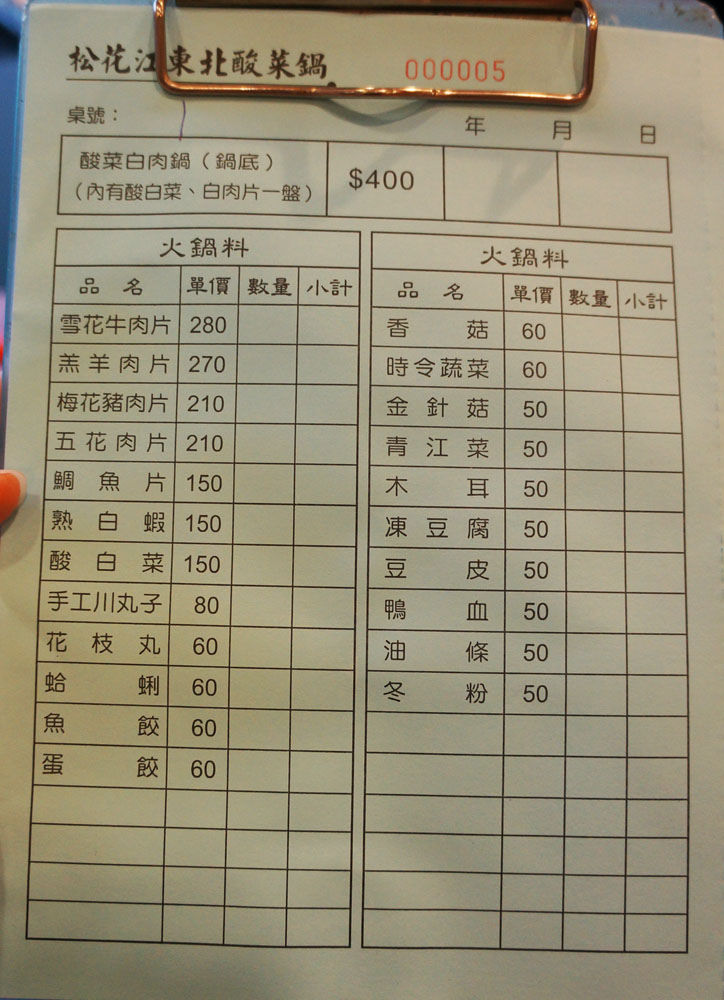 松花江東北酸菜鍋 000005
桌號： 年 月 日
酸菜白肉鍋（鍋底） $400
（內有酸白菜、白肉片一盤）
火鍋料
品名 單價 數量 小計
雪花牛肉片 280
羔羊肉片 270
梅花豬肉片 210
五花肉片 210
鯛魚片 150
熟白蝦 150
酸白菜 150
手工川丸子 80
花枝丸 60
蛤蜊 60
魚餃 60
蛋餃 60
火鍋料
品名 單價 數量 小計
香菇 60
時令蔬菜 60
金針菇 50
青江菜 50
木耳 50
凍豆腐 50
豆皮 50
鴨血 50
油條 50
冬粉 50